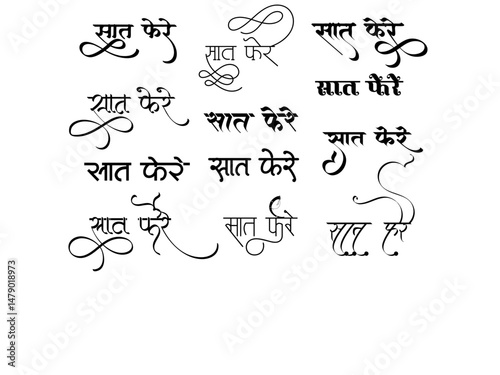 सात फेरे
सात फेरे
सात फेरे
सात फेरे
सात फेरे
सात फेरे
सात फेरे
सात फेरे
सात फेरे
सात फेरे
सात फेरे
सात फेरे
Adobe Stock | #1479018973